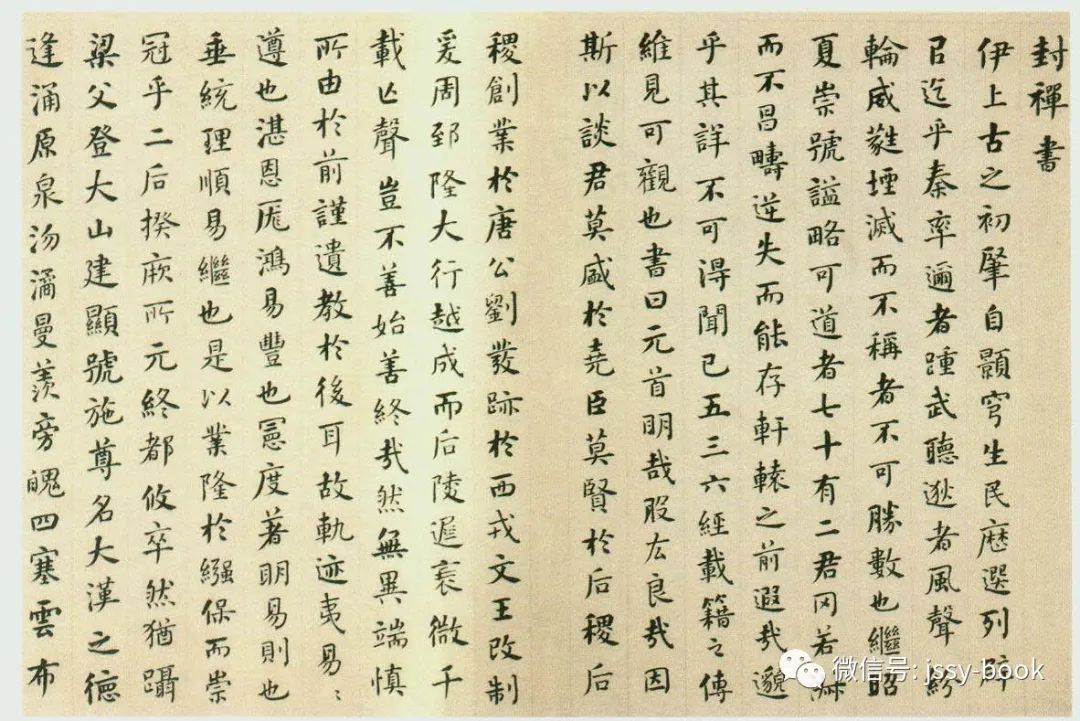 封禪書
伊上古之初肇自顥穹生民歷選列辟
㠯迄乎秦率邇者踵武聽逖者風聲紛
輪威蕤堙滅而不稱者不可勝數也繼昭
夏崇號謚略可道者七十有二君罔若淑
而不昌疇逆失而能存軒轅之前遐哉邈
乎其詳不可得聞已五三六經載籍之傳
維見可觀也書曰元首明哉股厷良哉因
斯以談君莫盛於堯臣莫賢於后稷后
稷創業於唐公劉發跡於西戎文王改制
爰周郅隆大行越成而后陵遲衰微千
載亡聲豈不善始善終哉然無異端慎
所由於前謹遺教於後耳故軌迹夷易〻
遵也湛恩厖鴻易豐也憲度著明易則也
垂統理順易繼也是以業隆於繈保而崇
冠乎二后揆厥所元終都攸卒然猶躡
梁父登大山建顯號施尊名大漢之德
逢涌原泉沕潏曼羨旁魄四塞雲布
微信号: jssy-book